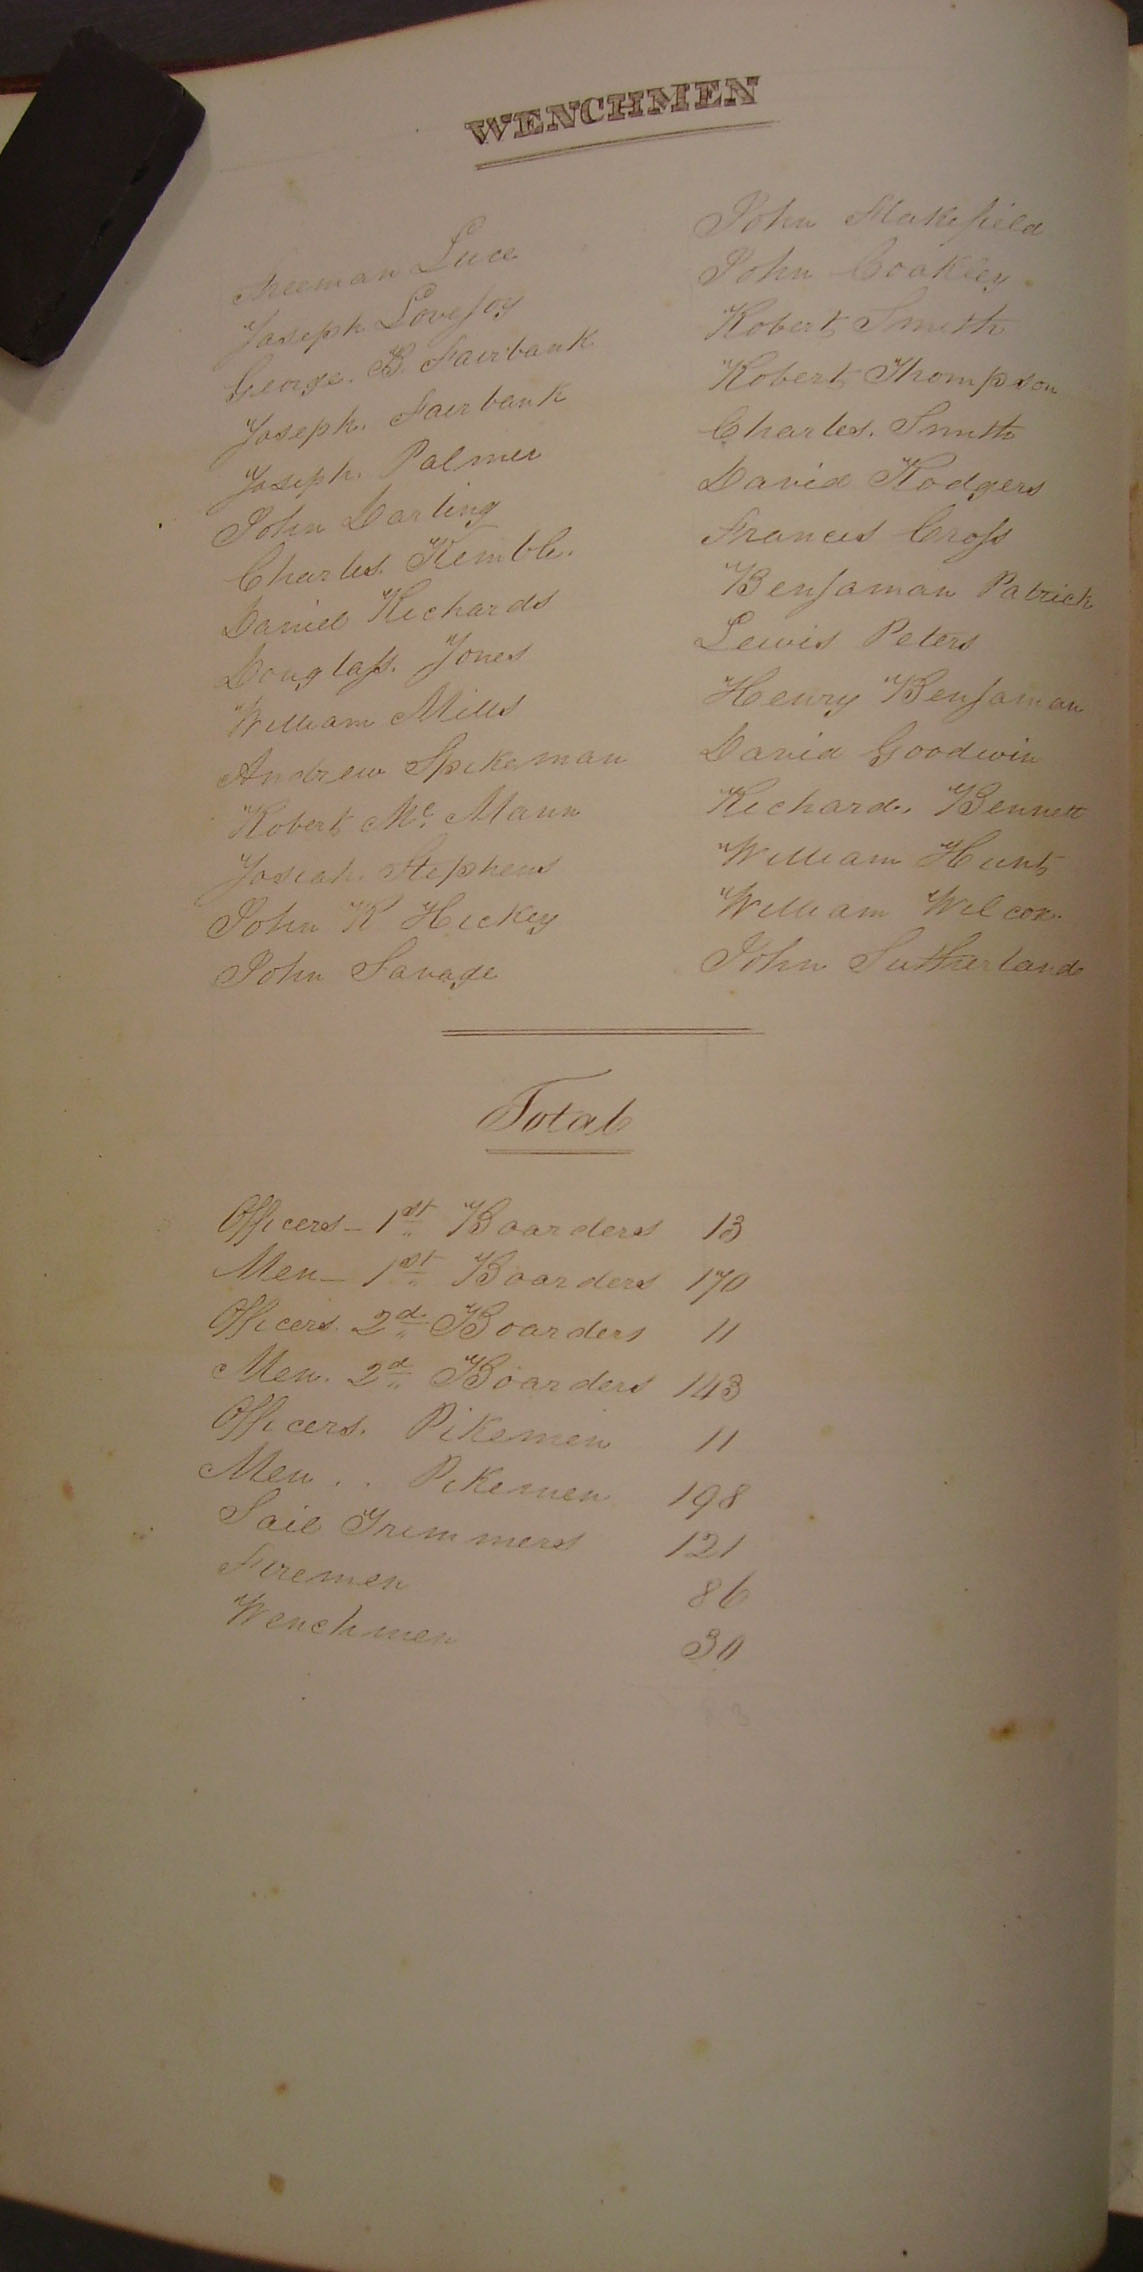 WENCHMEN
Freeman Luce
Joseph Lovejoy
George. B. Fairbank
Joseph. Fairbank
Joseph. Palmer
John Darling
Charles. Kemble.
Daniel Richards
Douglass. Jones
William Mills
Andrew Spikeman
Robert Mc. Mann
Josiah. Stephens
John R Hickey
John Savage
John Stakefield
John Coakley
Robert Smith
Robert Thompson
Charles. Smith
David Rodgers
Francis Cross
Benjaman Patrick
Lewis Peters
Henry Benjaman
David Goodwin
Richard. Bennett
William Hunt
William Wilcox.
John Sutherland
Total
Officers - 1st Boarders 13
Men - 1st Boarders 170
Officers. 2d Boarders 11
Men. 2d Boarders 143
Officers. Pikemen 11
Men . . Pikemen 198
Sail Trimmers 121
Firemen 86
Wenchmen 30